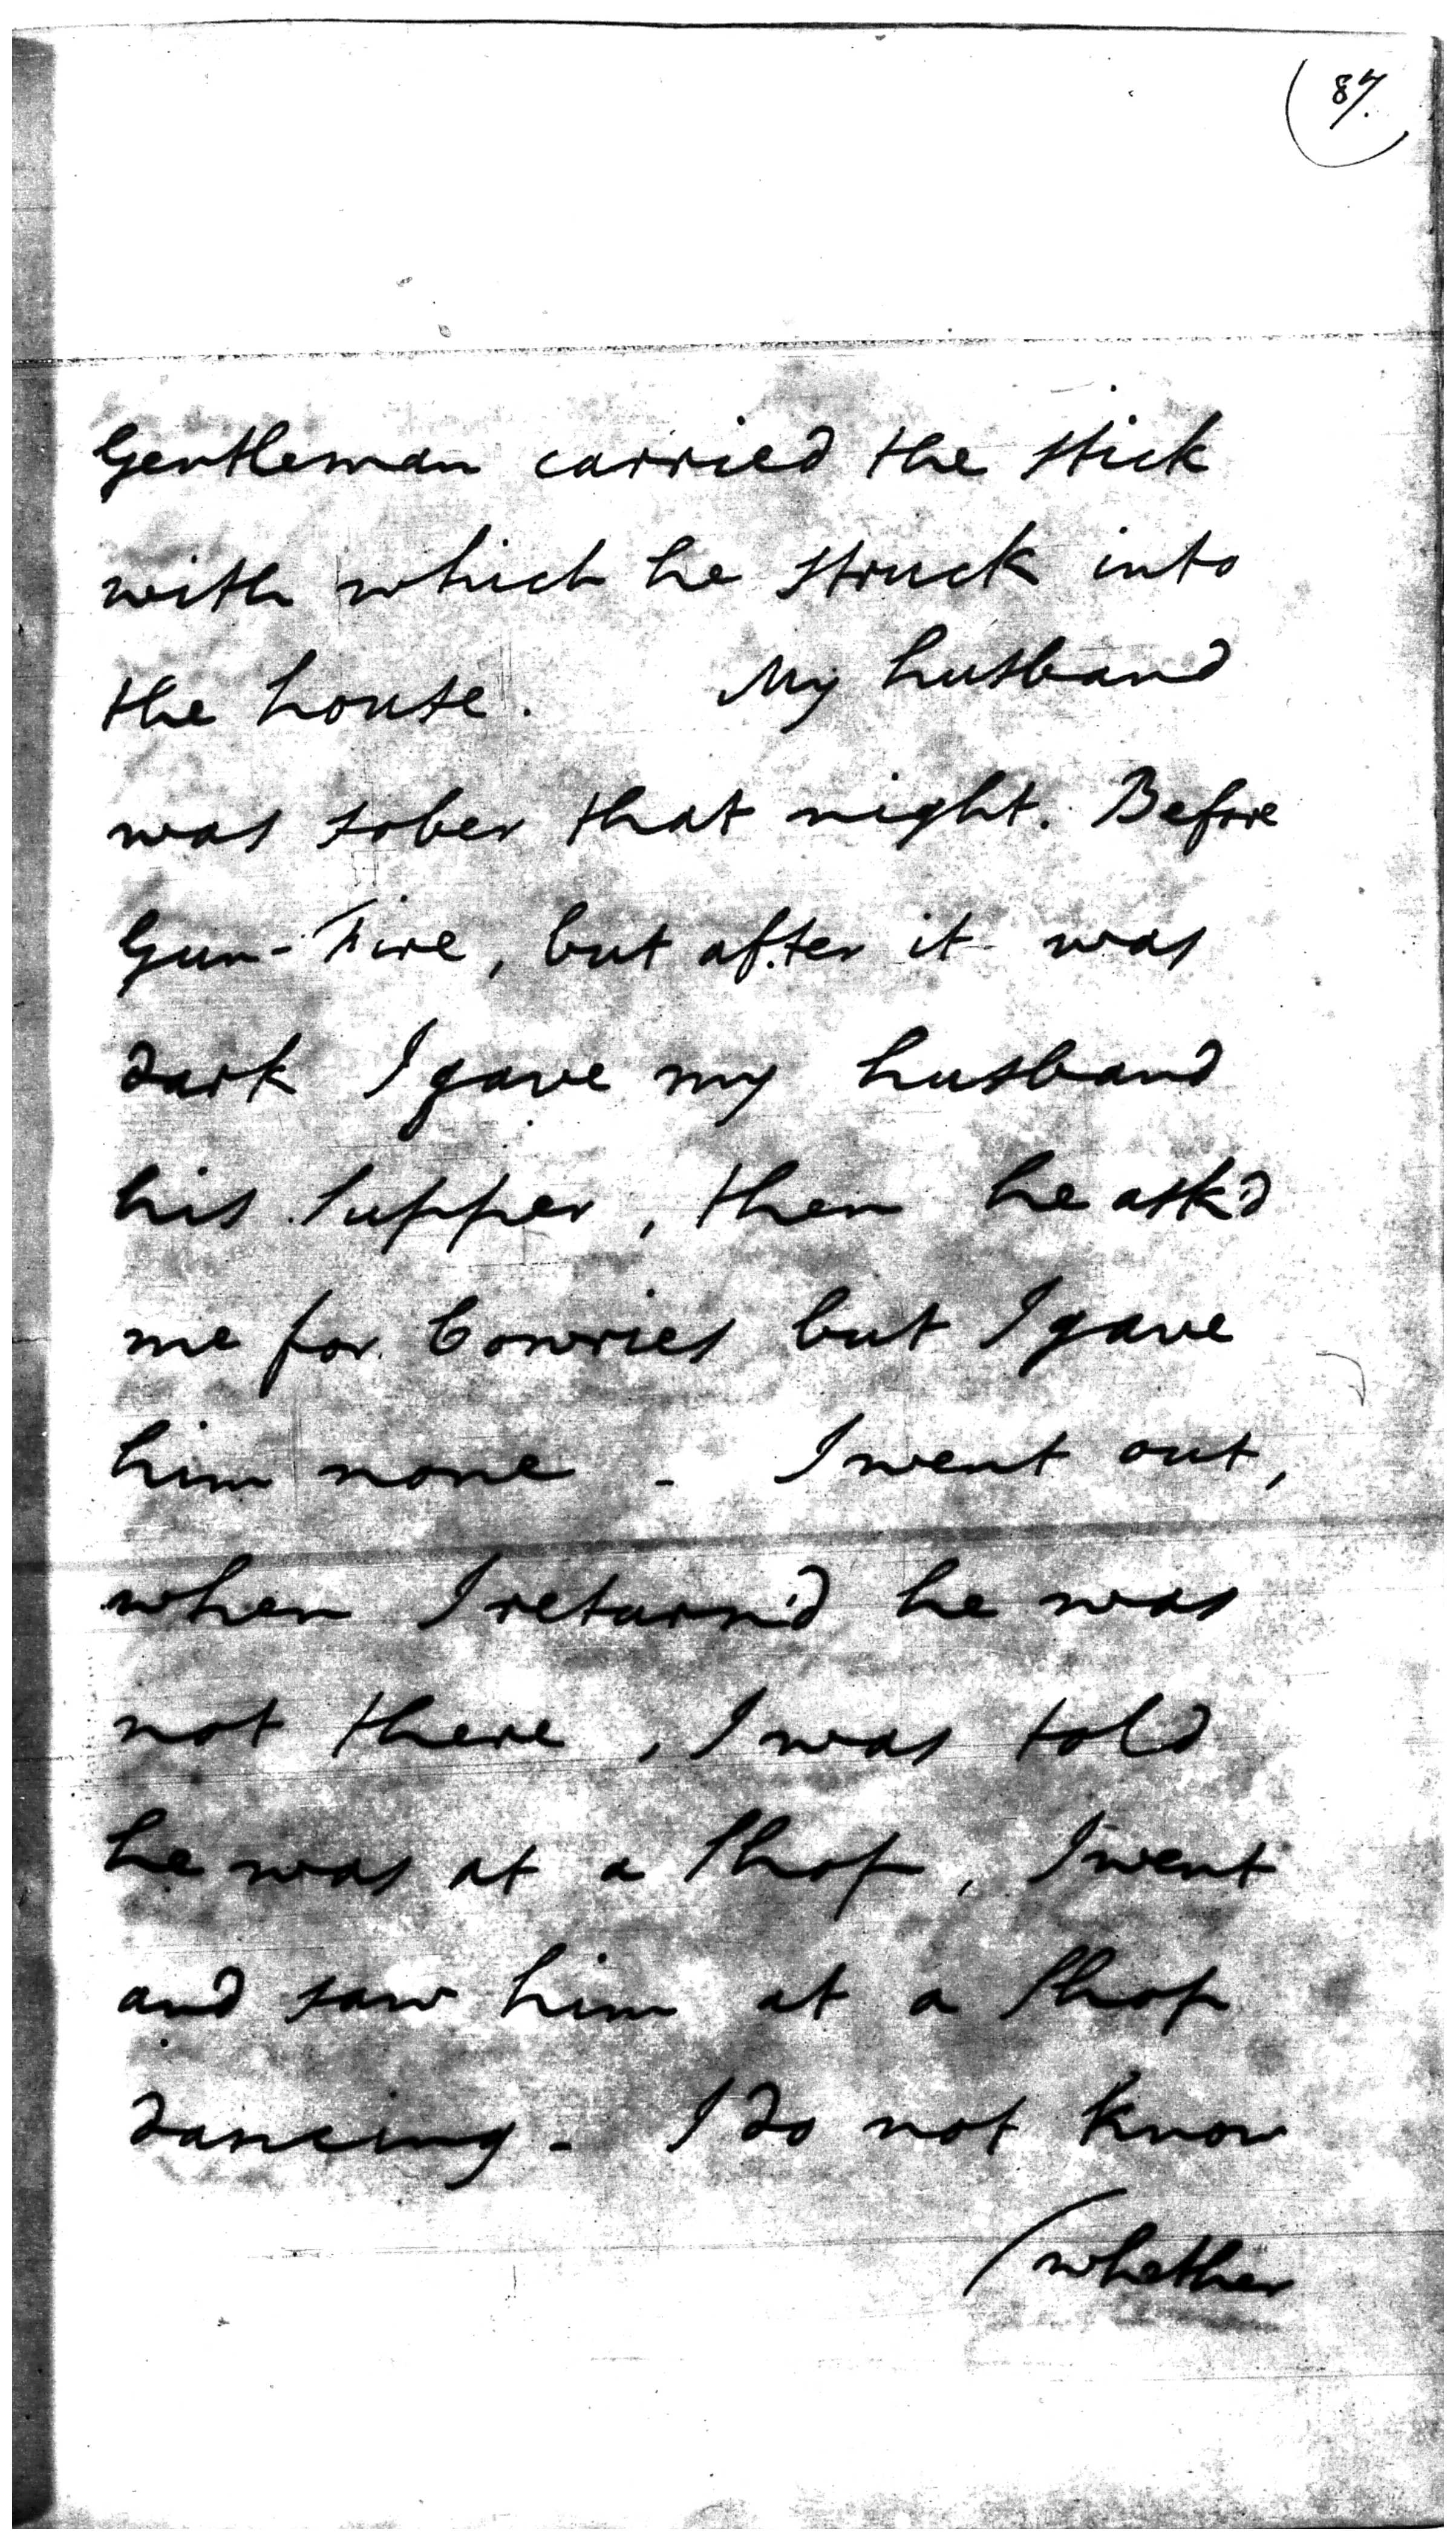 87.
Gentleman carried the stick
with which he struck into
the house. My husband
was sober that night. Before
Gun-Fire, but after it was
dark I gave my husband
his Supper, then he ask'd
me for Cowries but I gave
him none - I went out,
when I return'd he was
not there, I was told
he was at a Shop, I went
and saw him at a Shop
dancing - I do not know
whether